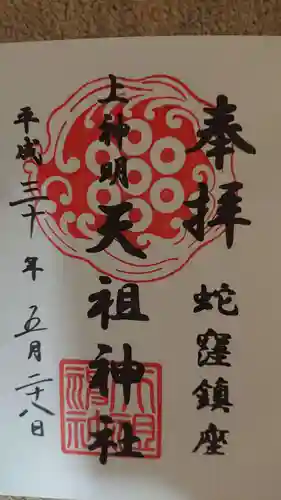 奉拝
蛇窪鎮座
上神明天祖神社
平成三十年五月二十八日